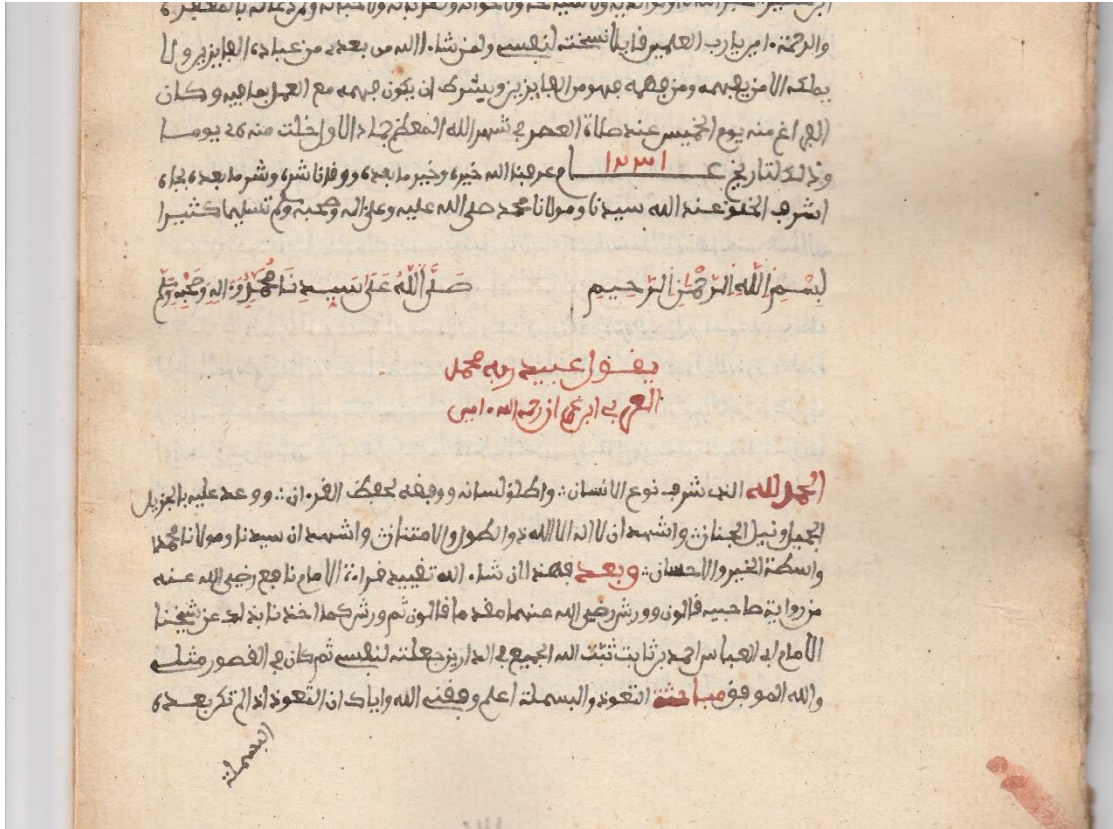 والرحمة ۰ امين يارب العلمين قايلا نسخته لنفسي ولمن شاء الله من بعدي من عباده الفايزين ولا
يملكه الا من يفهمه ومن فهمه فهو من الفايزين ويشرك ان يكون فهمه مع العمل بما فيه وكان
الفراغ منه يوم الخميس عند صلاة العصر في شهر الله المعظم جماد الاول خلت منه يوما
وذلك لتاريخ عــام ١٢٣١ عرفنا الله خيره وخير ما بعده ووقانا شره وشر ما بعده بجاه
اشرف الخلق عند الله سيدنا ومولانا محمد صلى الله عليه وعلى اله وصحبه وسلم تسليما كثيرا
بِسْمِ اللَّهِ الرَّحْمَٰنِ الرَّحِيمِ صَلَّى اللَّهُ عَلَى سَيِّدِنَا مُحَمَّدٍ وَءَالِهِ وَصَحْبِهِ وَسَلَّمَ
يقول عبيد ربه محمد
العربي ابن رحمه الله ۰ امين
الحمد لله الذي شرف نوع الانسان ∴ واطلق لسانه ووفقه لحفظ القرءان ∴ ووعد عليه بالجزيل
الجميل ونيل الجنان ∴ واشهد ان لا اله الا الله ذو الطول والامتنان ∴ واشهد ان سيدنا ومولانا محمدا
واسطة الخير والاحسان ∴ وبعد فهذا ان شاء الله تقييد قراءة الامام نافع رضي الله عنه
من رواية صاحبيه قالون وورش رضي الله عنهما مقدما قالون ثم ورش كما اخذنا بذلك عن شيخنا
الامام ابي العباس احمد بن ثابت ثبت الله الجميع في الدارين جعلته لنفسي ثم كان في القصور مثلي
والله الموفق مباحثة التعوذ والبسملة اعلم وفقني الله واياك ان التعوذ اذا لم تكن بعده
البسملة